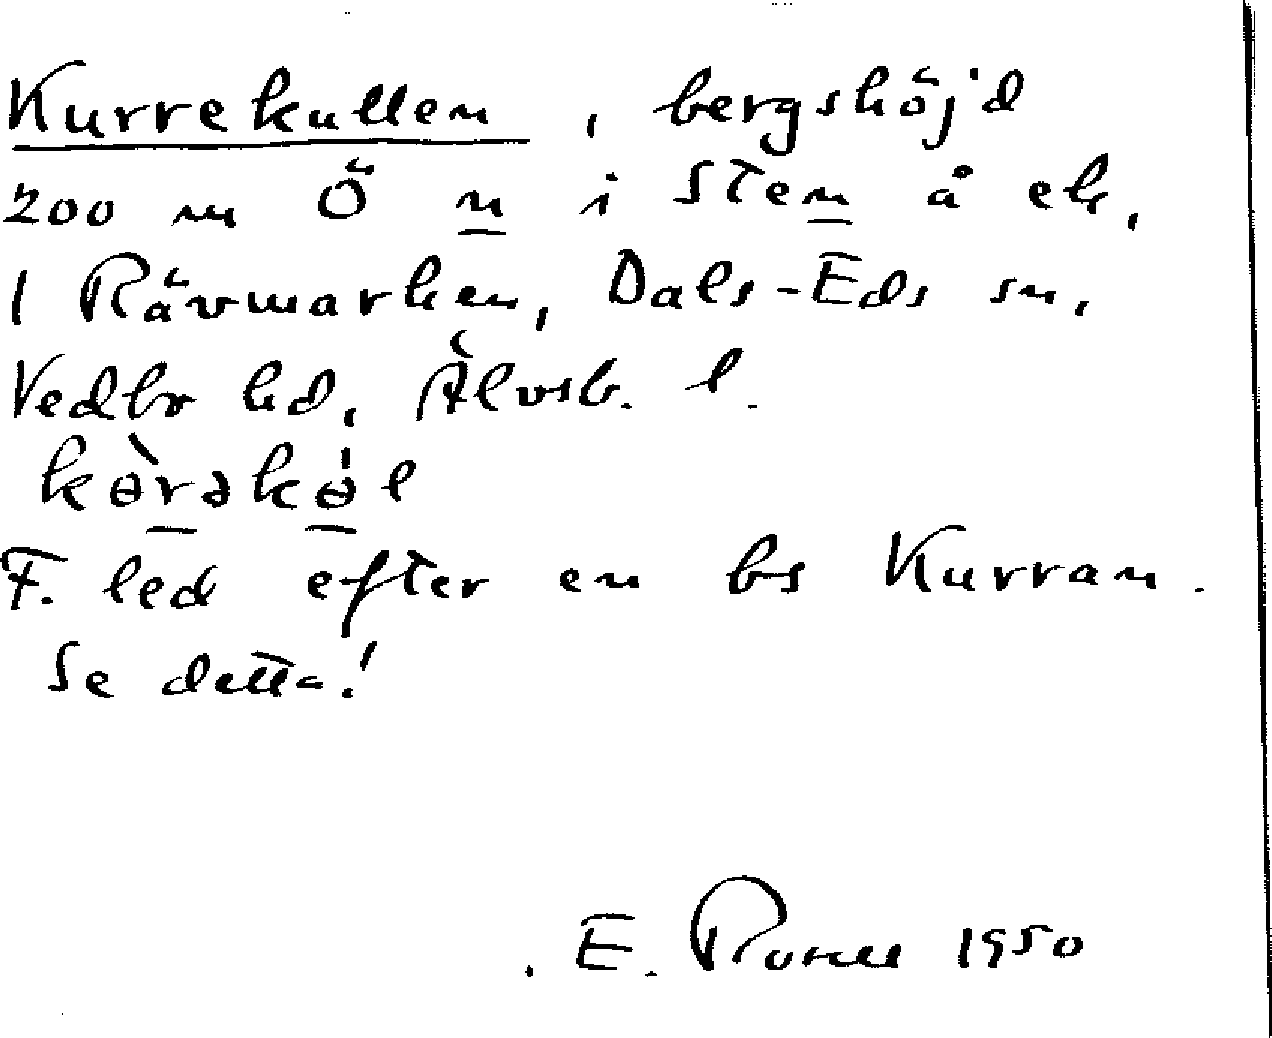 Kurrekullen, bergshöjd
200 m Ö n i Sten å ek.
1 Rävmarken, Dals-Eds sn,
Vedbo hd, Älvsb. l.
kɵ̀rəkɵ́l
F. led efter en bs Kurran.
Se detta!
E. 1950